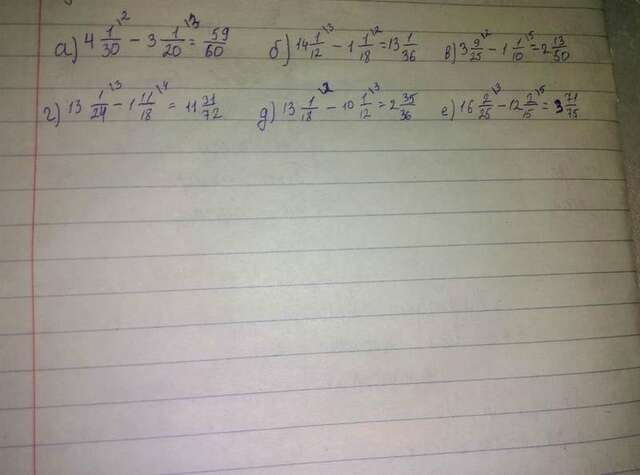 а) 4 1/30 \2 − 3 1/20 \3 = 59/60 б) 14 1/12 \3 − 1 1/18 \2 = 13 1/36 в) 3 9/25 \2 − 1 1/10 \5 = 2 13/50
г) 13 1/24 \3 − 1 11/18 \4 = 11 31/72 д) 13 1/18 \2 − 10 1/12 \3 = 2 35/36 е) 16 2/25 \3 − 12 2/15 \5 = 3 71/75